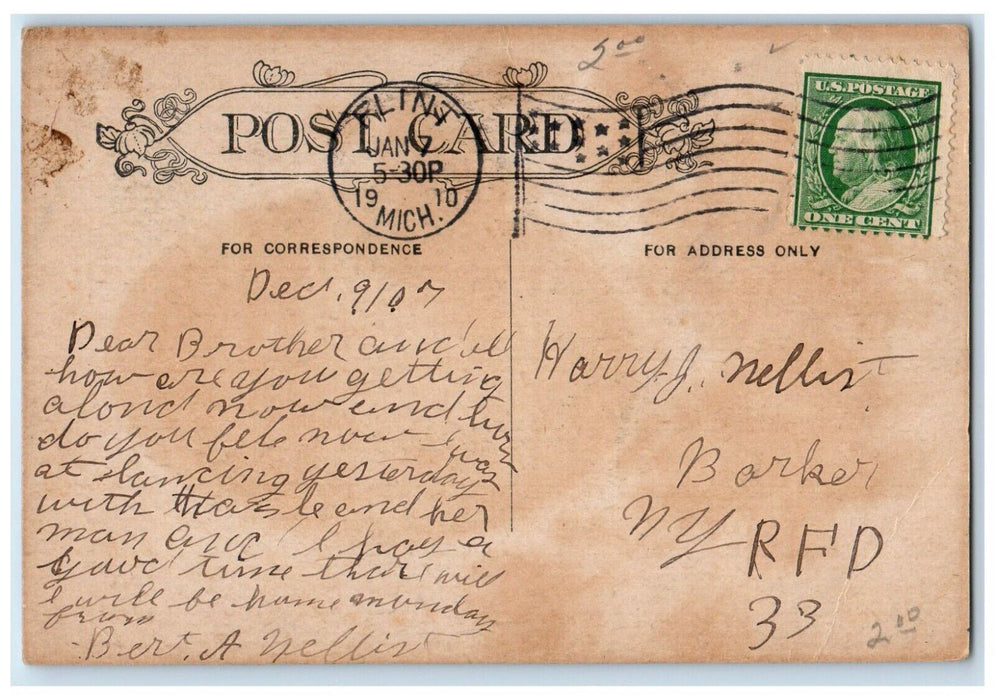 2 00
POST CARD
FLINT
JAN 7
5-30P
19 10
MICH.
U.S. POSTAGE
ONE CENT
FOR CORRESPONDENCE
FOR ADDRESS ONLY
Dear Brother and all
how are you getting
alond now and
do you fele now I was
at Lancing yesterday
with and her
man and I had a
good time there will
I will be home monday
from
Bert. A Nellist
Harry J. Nellist
Barker
NY RFD
33
2 00